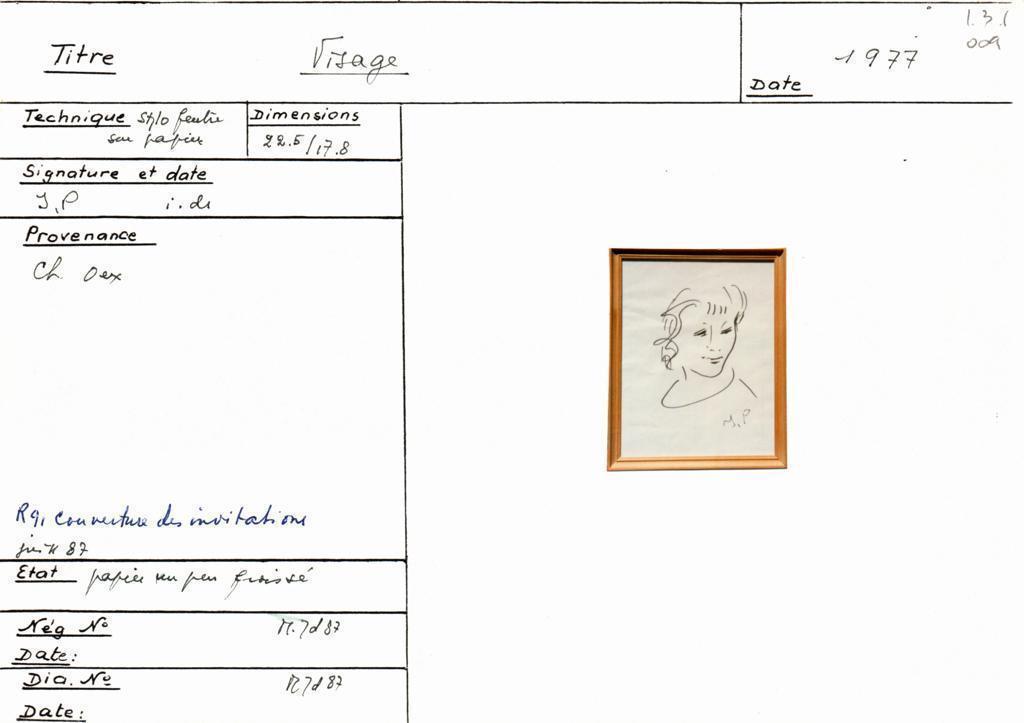 Titre Visage
Date 1977
1.3.1
009
Technique Stylo feutre
sur papier
Dimensions
22.5/17.8
Signature et date
J.P i. dr
Provenance
Ch. Oex
J.P
Rq, couverture des invitations
juil 87
Etat papier un peu froissé
Nég No M.7d87
Date:
Dia. No M7d87
Date: